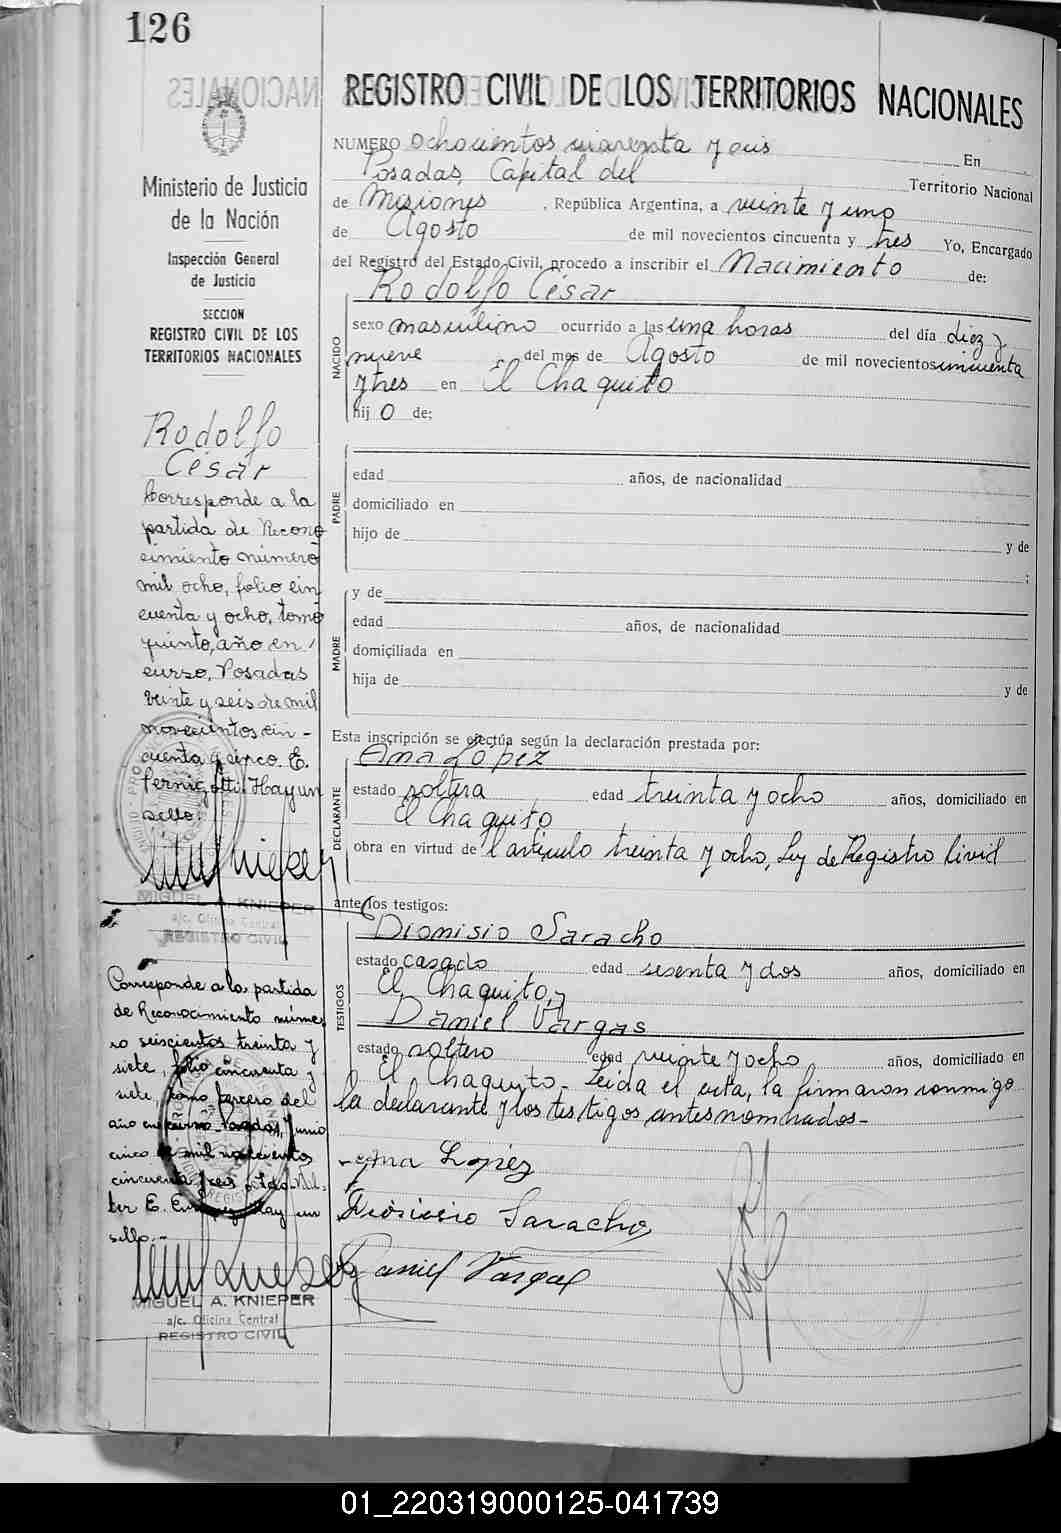 126
REGISTRO CIVIL DE LOS TERRITORIOS NACIONALES
Ministerio de Justicia
de la Nación
Inspección General
de Justicia
SECCION
REGISTRO CIVIL DE LOS
TERRITORIOS NACIONALES
Rodolfo
César
Corresponde a la
partida de Recono
cimiento número
mil ocho, folio cin
cuenta y ocho, tomo
quinto, año en
curso, Posadas
veinte y seis de mil
novecientos cin-
cuenta y cinco. E.
Pernigotti. Hay un
sello.
MIGUEL A. KNIEPER
a/c. Oficina Central
REGISTRO CIVIL
Corresponde a la partida
de Reconocimiento núme
ro seiscientos treinta y
siete, folio cincuenta y
siete, tomo tercero del
año en curso. Posadas, Junio
cinco de mil novecientos
cincuenta y
ter E. Hay un
sello.-
MIGUEL A. KNIEPER
a/c. Oficina Central
REGISTRO CIVIL
NUMERO ochocientos cuarenta y seis En
Posadas, Capital del Territorio Nacional
de Misiones, República Argentina, a veinte y uno
de Agosto de mil novecientos cincuenta y tres Yo, Encargado
del Registro del Estado Civil, procedo a inscribir el Nacimiento de:
Rodolfo César
NACIDO
sexo masculino ocurrido a las una horas del día diez y
nueve del mes de Agosto de mil novecientos cincuenta
y tres en El Chaquito
hij o de:
PADRE
edad años, de nacionalidad
domiciliado en
hijo de y de
;
MADRE
y de
edad años, de nacionalidad
domiciliada en
hija de y de
Esta inscripción se efectúa según la declaración prestada por:
Ana López
DECLARANTE
estado soltera edad treinta y ocho años, domiciliado en
El Chaquito
obra en virtud de l'artículo treinta y ocho, Ley de Registro Civil
ante los testigos:
Dionisio Saracho
TESTIGOS
estado casado edad sesenta y dos años, domiciliado en
El Chaquito, y
Daniel Vargas
estado soltero edad veinte y ocho años, domiciliado en
El Chaquito- Leida el acta, la firmaron conmigo
la declarante y los testigos antes nombrados-
Ana López
Dionisio Saracho
Daniel Vargas
01_220319000125-041739